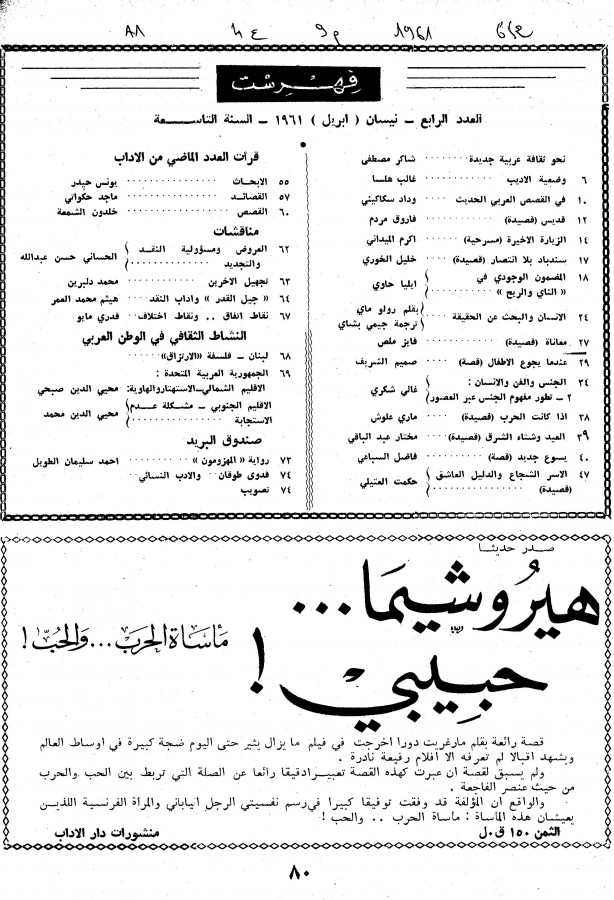 ٨١ ٤ ٩م 1961
فهرست
العدد الرابع - نيسان ( ابريل ) ١٩٦١ - السنة التاسعة
نحو ثقافة عربية جديدة شاكر مصطفى
٦ وضعية الاديب غالب هلسا
١٠ في القصص العربي الحديث وداد سكاكيني
١٢ قديس (قصيدة) فاروق مردم
١٤ الزيارة الاخيرة (مسرحية) اكرم الميداني
١٧ سندباد بلا انتصار (قصيدة) خليل الخوري
١٨ المضمون الوجودي في
« الناي والريح » ايليا حاوي
٢٤ الانسان والبحث عن الحقيقة بقلم رولو ماي
ترجمة جيمي بشاي
٢٧ معاناة (قصيدة) فايز ملص
٢٩ عندما يجوع الاطفال (قصة) صميم الشريف
٣٤ الجنس والفن والانسان :
٢ - تطور مفهوم الجنس عبر العصور غالي شكري
٣٨ اذا كانت الحرب (قصيدة) ماري علوش
٣٩ العيد وشتاء الشرق (قصيدة) مختار عبد الباقي
٤٠ يسوع جديد (قصة) فاضل السباعي
٤٧ الاسر الشجاع والدليل العاشق
(قصيدة) حكمت العتيلي
قرأت العدد الماضي من الاداب
٥٥ الابحاث يونس حيدر
٥٧ القصائد ماجد حكواتي
٦٠ القصص خلدون الشمعة
مناقشات
٦٢ العروض ومسؤولية النقد
والتجديد الحساني حسن عبدالله
٦٣ تجهيل الاخرين محمد دلبرين
٦٤ « جيل القدر » واداب النقد هيثم محمد العمر
٦٧ نقاط اتفاق .. ونقاط اختلاف قدري مايو
النشاط الثقافي في الوطن العربي
٦٨ لبنان - فلسفة «الارتزاق»
٦٩ الجمهورية العربية المتحدة :
الاقليم الشمالي-الاستهتار والهاوية: محيي الدين صبحي
الاقليم الجنوبي - مشكلة عدم
الاستجابة محيي الدين محمد
صندوق البريد
٧٣ رواية « المهزومون » احمد سليمان الطويل
٧٤ فدوى طوقان والادب النسائي
٧٤ تصويب
صدر حديثا
هيروشيما...
حبيبي !
مأساة الحرب... والحب !
قصة رائعة بقلم مارغريت دورا اخرجت في فيلم ما يزال يثير حتى اليوم ضجة كبيرة في اوساط العالم
ويشهد اقبالا لم تعرفه الا افلام رفيعة نادرة .
ولم يسبق لقصة ان عبرت كهذه القصة تعبيرا دقيقا رائعا عن الصلة التي تربط بين الحب والحرب
من حيث عنصر الفاجعة .
والواقع ان المؤلفة قد وفقت توفيقا كبيرا في رسم نفسيتي الرجل الياباني والمرأة الفرنسية اللذين
يعيشان هذه المأساة : مأساة الحرب .. والحب !
الثمن ١٥٠ ق.ل منشورات دار الاداب
٨٠